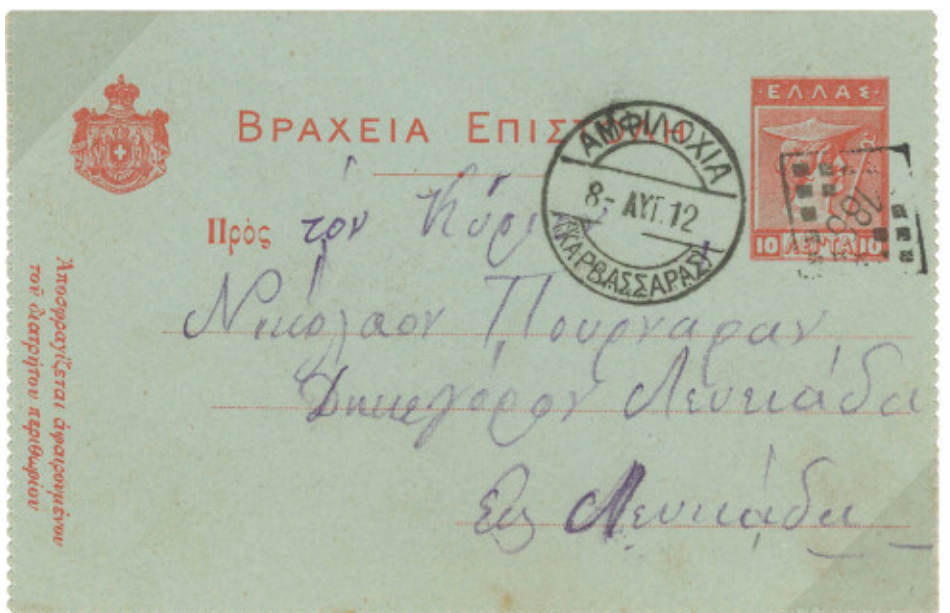 ΒΡΑΧΕΙΑ ΕΠΙΣΤΟΛΗ
ΕΛΛΑΣ
10 ΛΕΠΤΑ 10
ΑΜΦΙΛΟΧΙΑ
8- ΑΥΓ. 12
(ΚΑΡΒΑΣΣΑΡΑΣ)
Πρὸς τον Κύριον
Νικόλαον Πουρναραν
Δικηγόρον Λευκάδα
Εις Λευκάδα
Ἀποσφραγίζεται ἀφαιρουμένου
τοῦ διατρήτου περιθωρίου